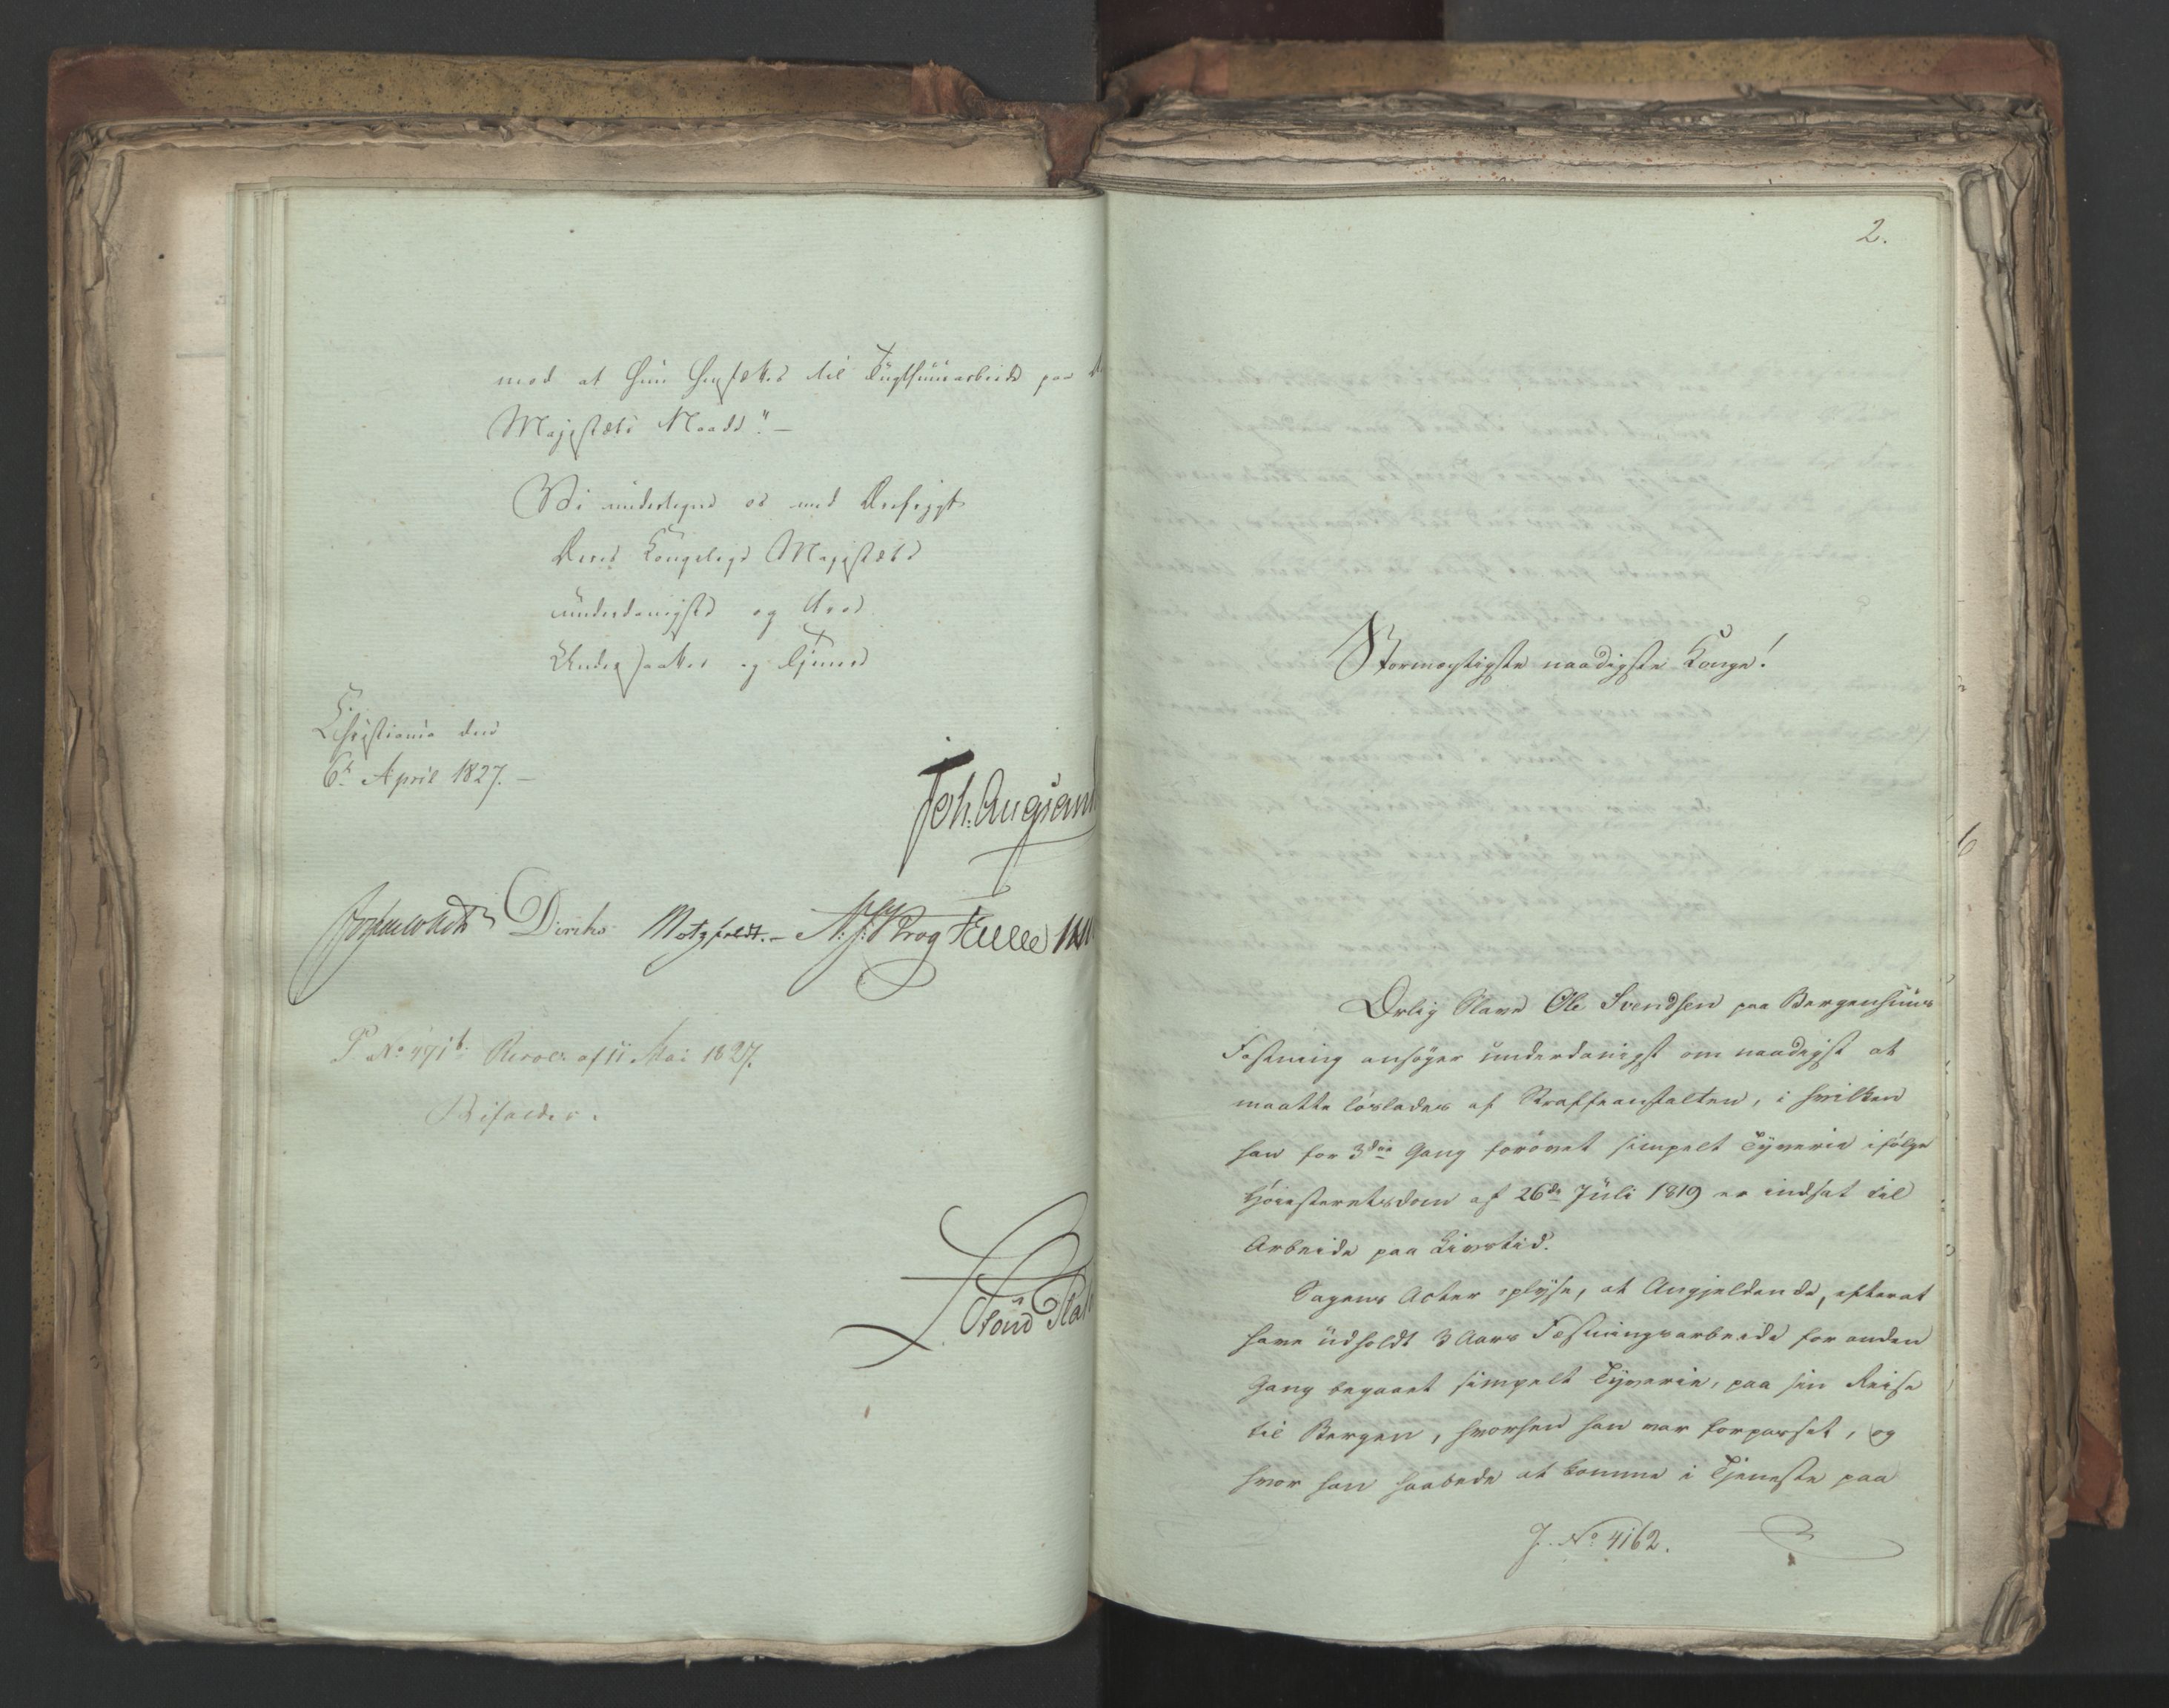 mod at hun hensættes til Tugthuusarbeide paa
Majestæts Naade". –
Vi undertegne os med Ærefrygt
Deres Kongelige Majestæts
underdanigste og troe
Undersaatter og Tjenere
Christiania den
6te April 1827. –
Joh. Aug: Sand
Diriks Motzfeldt. – A: J: Krog
P. No 471b. Resol: af 11 Mai 1827.
Bifaldes.
2.
Stormægtigste naadigste Konge!
Ærlig Slave Ole Svendsen paa Bergenhuus
Fæstning ansøger underdanigst om naadigst at
maatte løslades af Straffeanstalten, i hvilken
han for 3die Gang forøvet simpelt Tyverie ifølge
Høiesteretsdom af 26de Juli 1819 er indsat til
Arbeide paa Livstid.
Sagens Acter oplyse, at Angjeldende, efterat
have udholdt 3 Aars Fæstningsarbeide for anden
Gang begaaet simpelt Tyverie, paa sin Reise
til Bergen, hvorhen han var forpasset, og
hvor han haabede at komme i Tjeneste paa
J. No 4162.